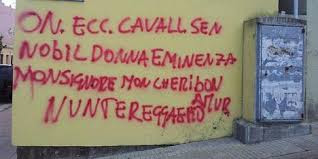 ON. ECC. CAVALL. SEN
NOBIL DONNA EMINENZA
MONSIGNORE MON CHERI BON
AMUR
NUNTEREGGAEPIÙ